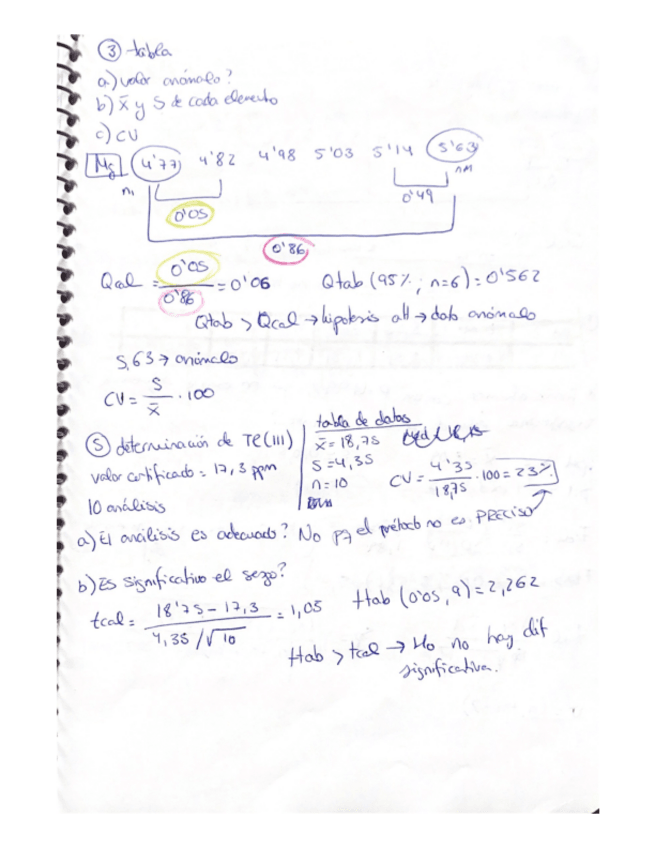 ③ tabla
a) valor anómalo?
b) x̄ y S de cada elemento
c) CV
Mg 4'77 4'82 4'98 5'03 5'14 5'63
n₁
0'05
0'49
0'86
Qcal = 0'05 / 0'86 = 0'06 Qtab (95%; n=6) = 0'562
Qtab > Qcal → hipótesis alt → dato anómalo
5,63 → anómalo
CV = S / x̄ · 100
⑤ determinación de Te(III)
valor certificado = 17,3 ppm
10 análisis
tabla de datos
x̄ = 18,75
S = 4,35
n = 10
CV = 4'35 / 18,75 · 100 = 23%
a) El análisis es adecuado? No pq el método no es PRECISO
b) Es significativo el sesgo?
tcal = 18'75 - 17,3 / 4,35 / √10 = 1,05 ttab (0'05, 9) = 2,262
ttab > tcal → Ho no hay dif
significativa.